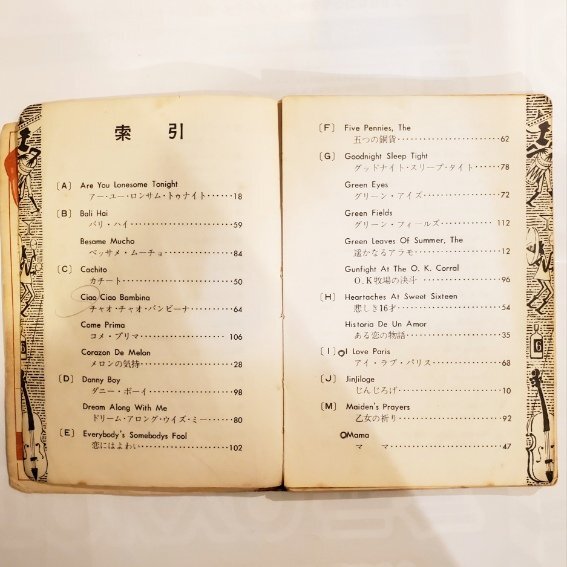 索引
[A] Are You Lonesome Tonight
アー・ユー・ロンサム・トゥナイト・・・・・・・18
[B] Bali Hai
バリ・ハイ・・・・・・・・・・・・・・・・・・・・59
Besame Mucho
ベッサメ・ムーチョ・・・・・・・・・・・・・84
[C] Cachito
カチート・・・・・・・・・・・・・・・・・・・・・50
Ciao Ciao Bambina
チャオ・チャオ・バンビーナ・・・・・・・・・64
Come Prima
コメ・プリマ・・・・・・・・・・・・・・・・・106
Corazon De Melon
メロンの気持・・・・・・・・・・・・・・・・・28
[D] Danny Boy
ダニー・ボーイ・・・・・・・・・・・・・・・98
Dream Along With Me
ドリーム・アロング・ウイズ・ミー・・・・・・・80
[E] Everybody's Somebodys Fool
恋にはよわい・・・・・・・・・・・・・・・・102
[F] Five Pennies, The
五つの銅貨・・・・・・・・・・・・・・・・・・62
[G] Goodnight Sleep Tight
グッドナイト・スリープ・タイト・・・・・・・78
Green Eyes
グリーン・アイズ・・・・・・・・・・・・・・72
Green Fields
グリーン・フィールズ・・・・・・・・・・・112
Green Leaves Of Summer, The
遥かなるアラモ・・・・・・・・・・・・・・・12
Gunfight At The O. K. Corral
O.K牧場の決斗・・・・・・・・・・・・・・・96
[H] Heartaches At Sweet Sixteen
悲しき16才・・・・・・・・・・・・・・・・・54
Historia De Un Amor
ある恋の物語・・・・・・・・・・・・・・・・35
[I] I Love Paris
アイ・ラブ・パリス・・・・・・・・・・・・・68
[J] JinJiloge
じんじろげ・・・・・・・・・・・・・・・・・・10
[M] Maiden's Prayers
乙女の祈り・・・・・・・・・・・・・・・・・・92
Mama
マ マ・・・・・・・・・・・・・・・・・・・・・47
6